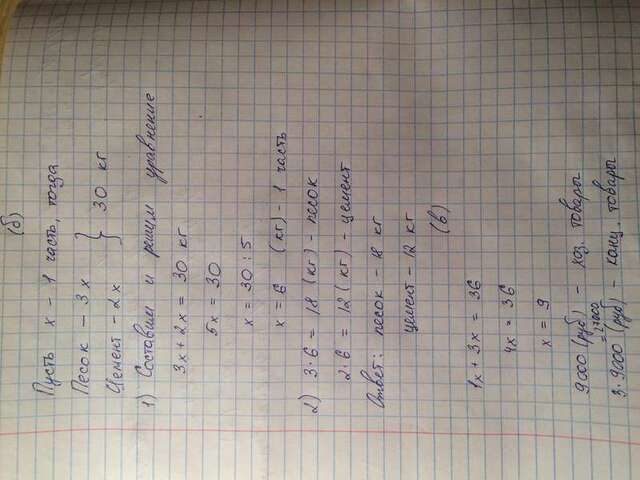 (б)
Пусть x - 1 часть, тогда
Песок - 3x
Цемент - 2x } 30 кг
1) Составим и решим уравнение
3x + 2x = 30 кг
5x = 30
x = 30 : 5
x = 6 (кг) - 1 часть
2) 3·6 = 18 (кг) - песок
2·6 = 12 (кг) - цемент
Ответ: песок - 18 кг
цемент - 12 кг
(в)
1x + 3x = 36
4x = 36
x = 9
9000 (руб) - хоз. товары
3·9000 = 27000 (руб) - канц. товары